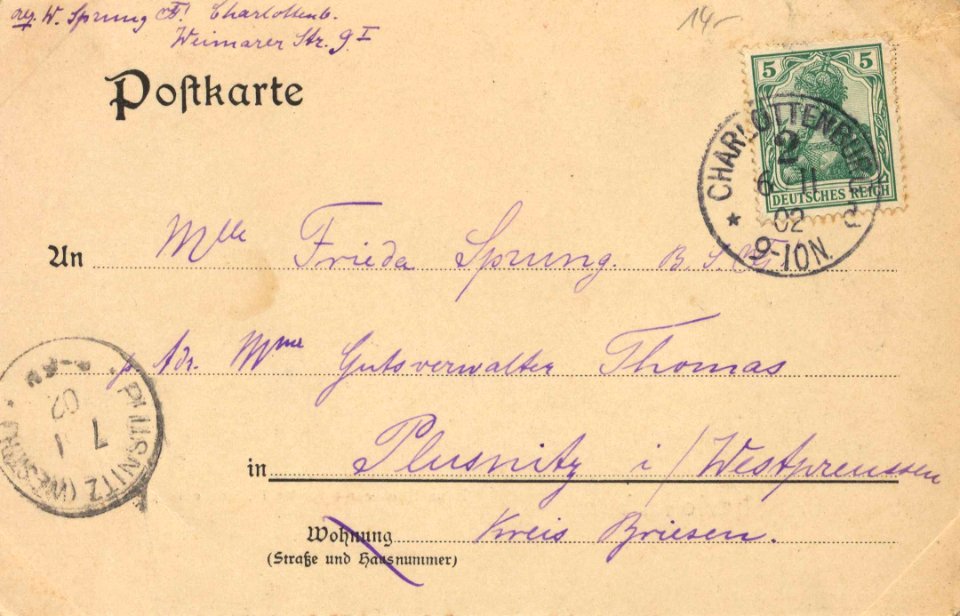 W. Sprung Charlottenb.
Weimarer Str. 9 I
14-
Postkarte
5 5
DEUTSCHES REICH
CHARLOTTENBURG
2
6 11
02
9-10N.
An Mlle Frieda Sprung. B. S.
Adr. Mme Gutsverwalter Thomas
PLUSNITZ (WESTPR.)
7 11
02
in Plusnitz i/Westpreussen
Wohnung Kreis Briesen.
(Straße und Hausnummer)